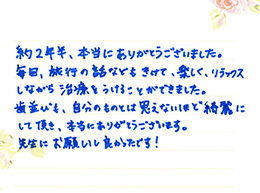 約2年半、本当にありがとうございました。
毎回、旅行の話なども きけて、楽しく、リラックス
しながら 治療をうけることができました。
歯並びも、自分のものとは 思えないほど 綺麗に
して頂き、本当にありがとうございます。
先生に お願いし 良かったです！